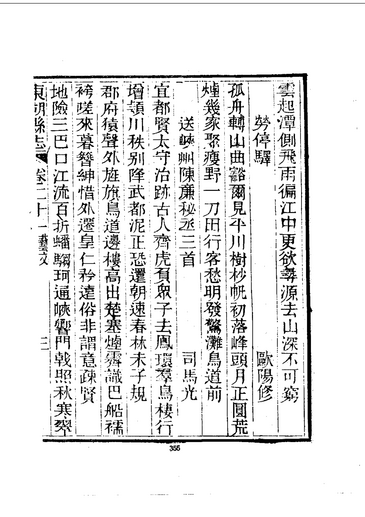 雲起潭側飛雨徧江中更欲尋源去山深不可窮
勞停驛 歐陽修
孤舟轉山曲豁爾見平川樹杪帆初落峰頭月正圓荒
煙幾家聚瘦野一刀田行客愁明發驚灘鳥道前
送峽州陳廉秘丞三首 司馬光
宜都賢太守治跡古人齊虎負眾子去鳳環羣鳥棲行
增潁川秩别降武都泥正恐還朝速春林未子規
郡府猿聲外旌旗鳥道邊樓高出楚塞煙霽識巴船襦
袴嗟來暮簪紳惜外遷皇仁矜遠俗非謂意疎賢
地險三巴口江流百折蟠騶珂遍峽響門戟照秋寒翠
東湖縣志 卷二十一 藝文 三
355